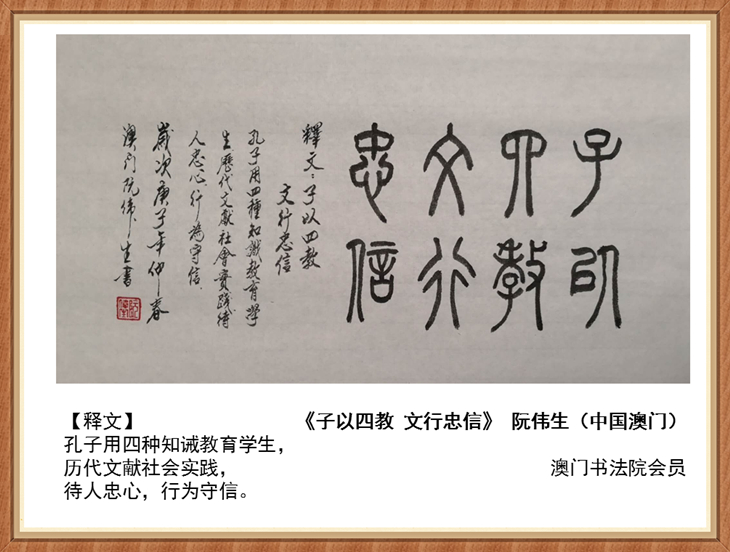 子以
四教
文行
忠信
釋文：子以四教
文行忠信
孔子用四種知識教育學
生歷代文獻社會實踐待
人忠心，行為守信．
歲次庚子年仲春
澳门阮偉生書
【释文】
《子以四教 文行忠信》 阮伟生（中国澳门）
孔子用四种知诫教育学生，
历代文献社会实践，
澳门书法院会员
待人忠心，行为守信。